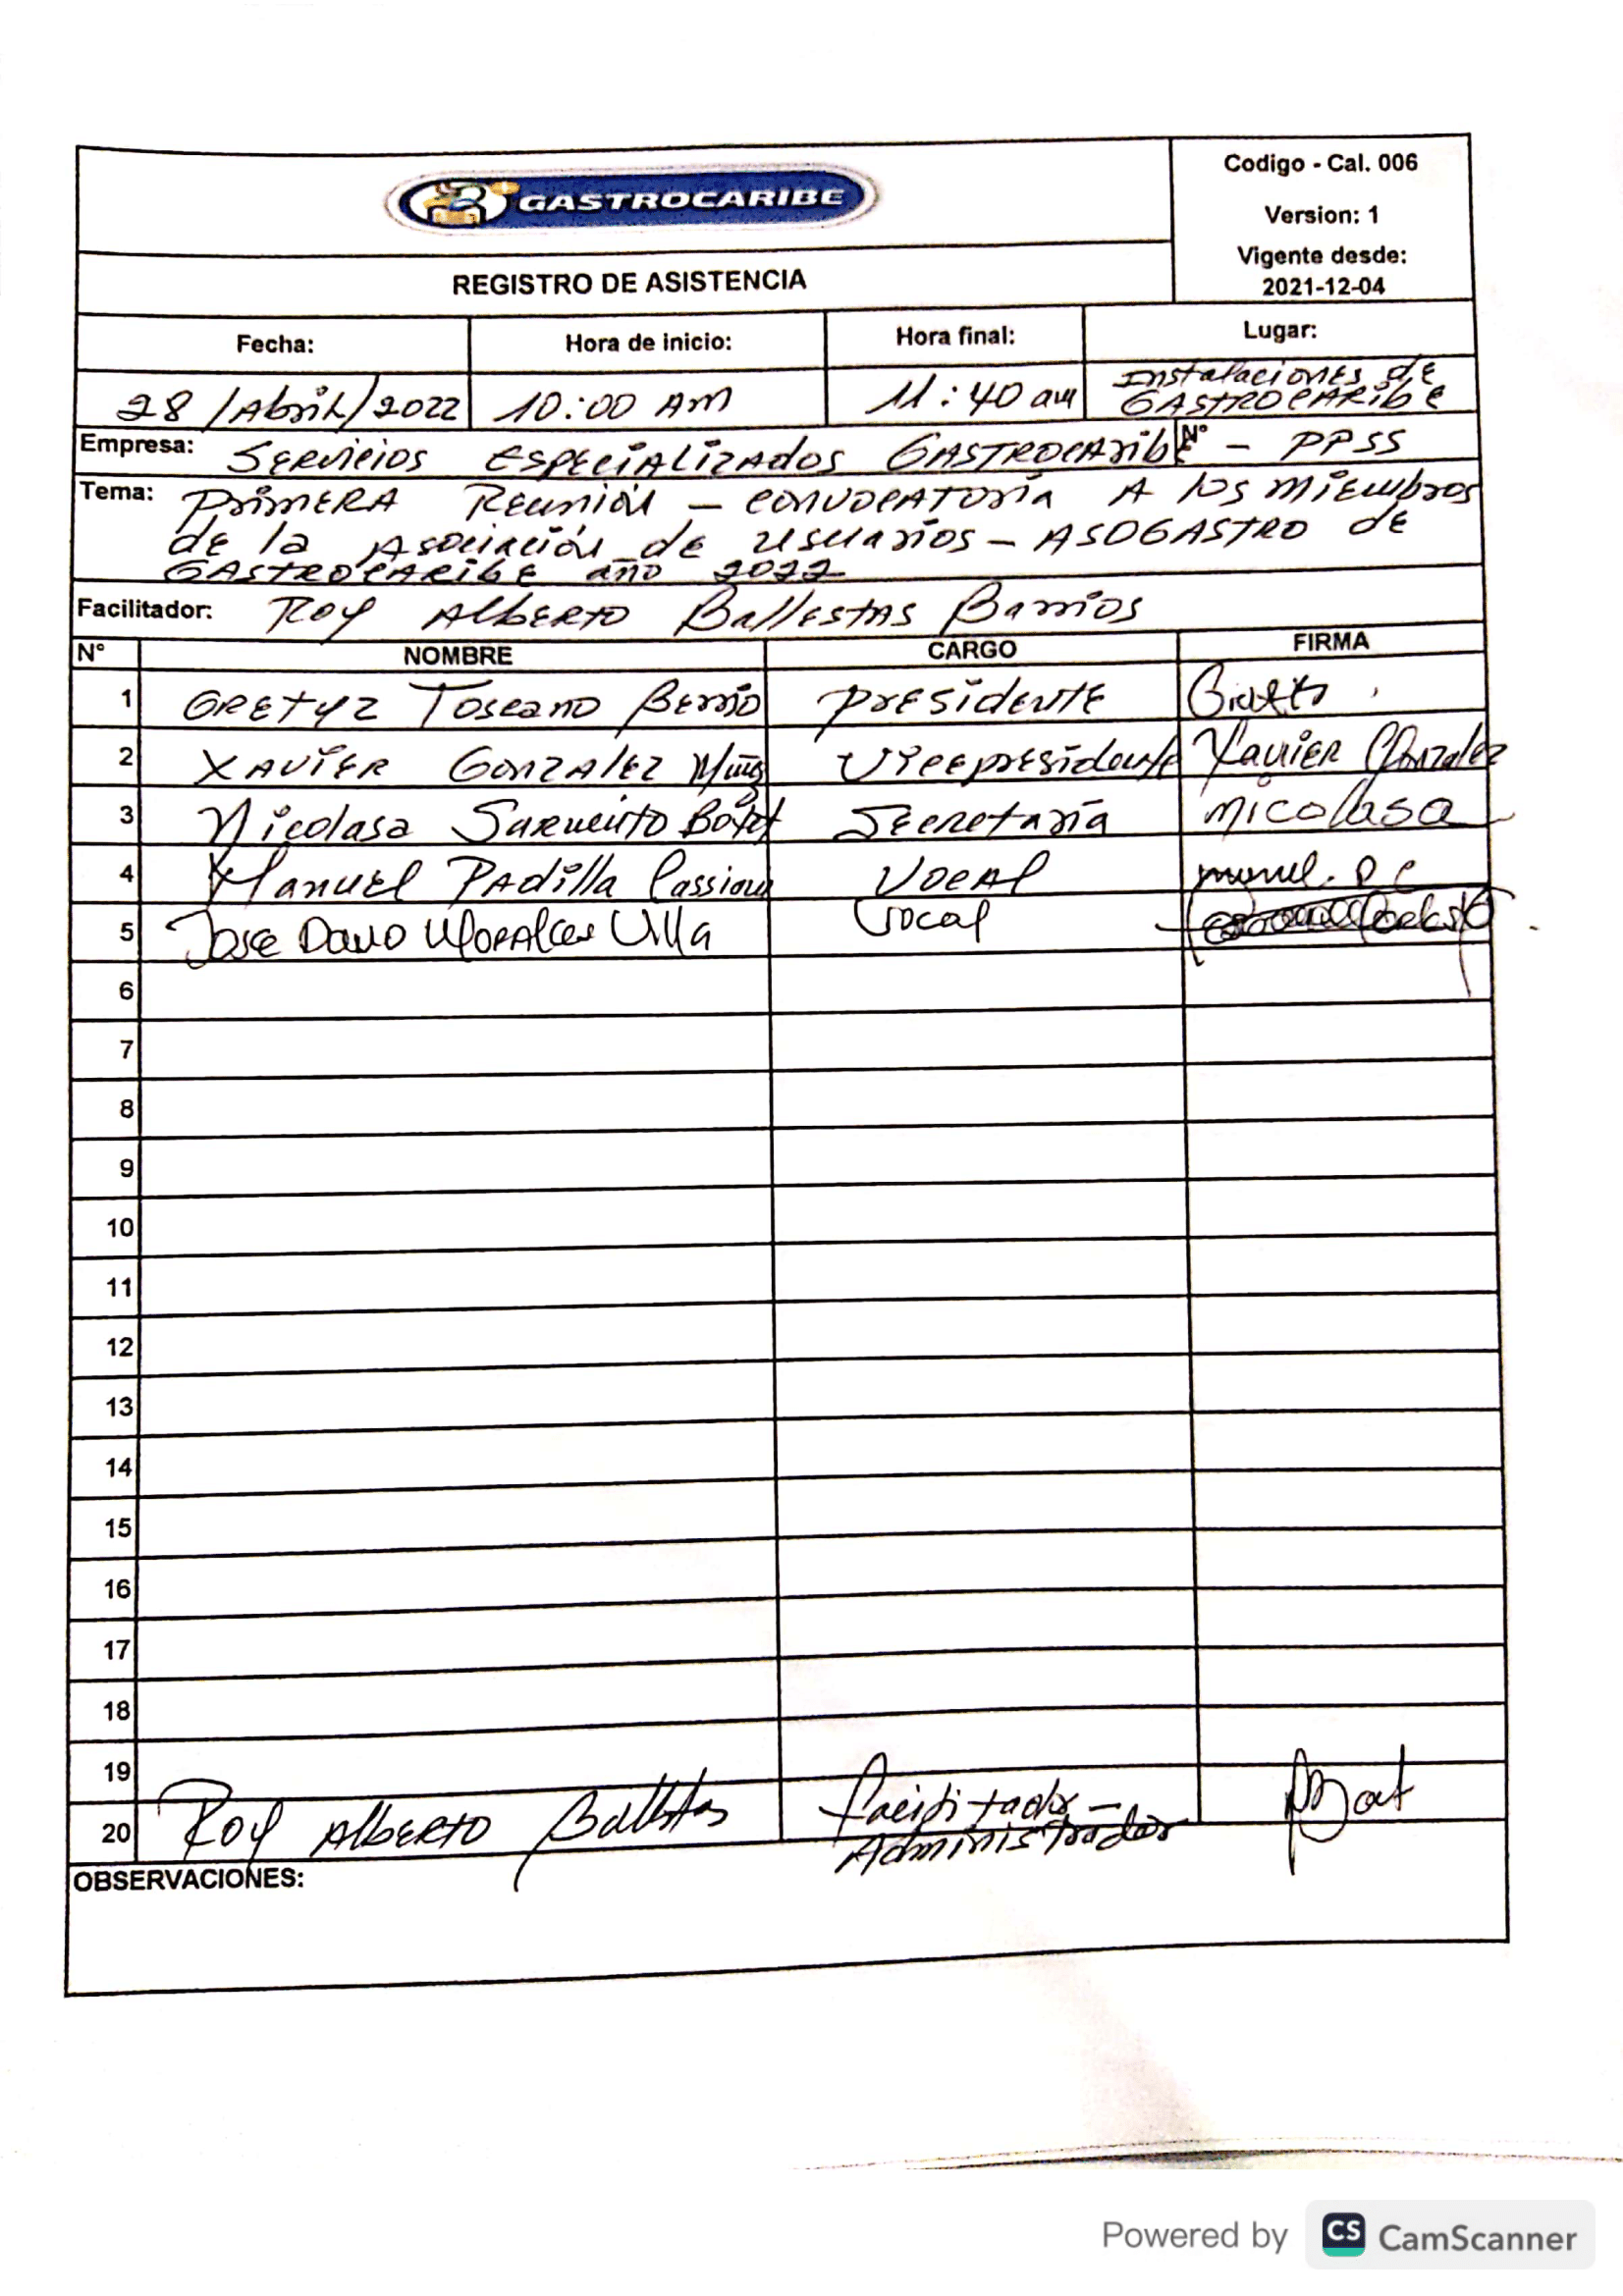 GASTROCARIBE
Codigo - Cal. 006
Version: 1
Vigente desde:
2021-12-04
REGISTRO DE ASISTENCIA
Fecha: Hora de inicio: Hora final: Lugar:
28/Abril/2022 10:00 AM 11:40 am Instalaciones de
GASTROCARIBE
Empresa: Servicios Especializados GASTROCARIBE N° - PPSS
Tema: Primera Reunión - convocatoria A los miembros
de la Asociación de usuarios - ASOGASTRO de
GASTROCARIBE año 2022
Facilitador: Roy Alberto Ballestas Barrios
N° NOMBRE CARGO FIRMA
1 Gretyz Toscano Berrio presidente
2 Xavier Gonzalez Vicepresidente Xavier Gonzalez
3 Nicolasa Sarmiento Secretaría Nicolasa
4 Manuel Padilla Vocal
5 Jose David Morales Villa Vocal
6
7
8
9
10
11
12
13
14
15
16
17
18
19
20 Roy Alberto Ballestas Facilitador -
Administrador
OBSERVACIONES:
Powered by CS CamScanner